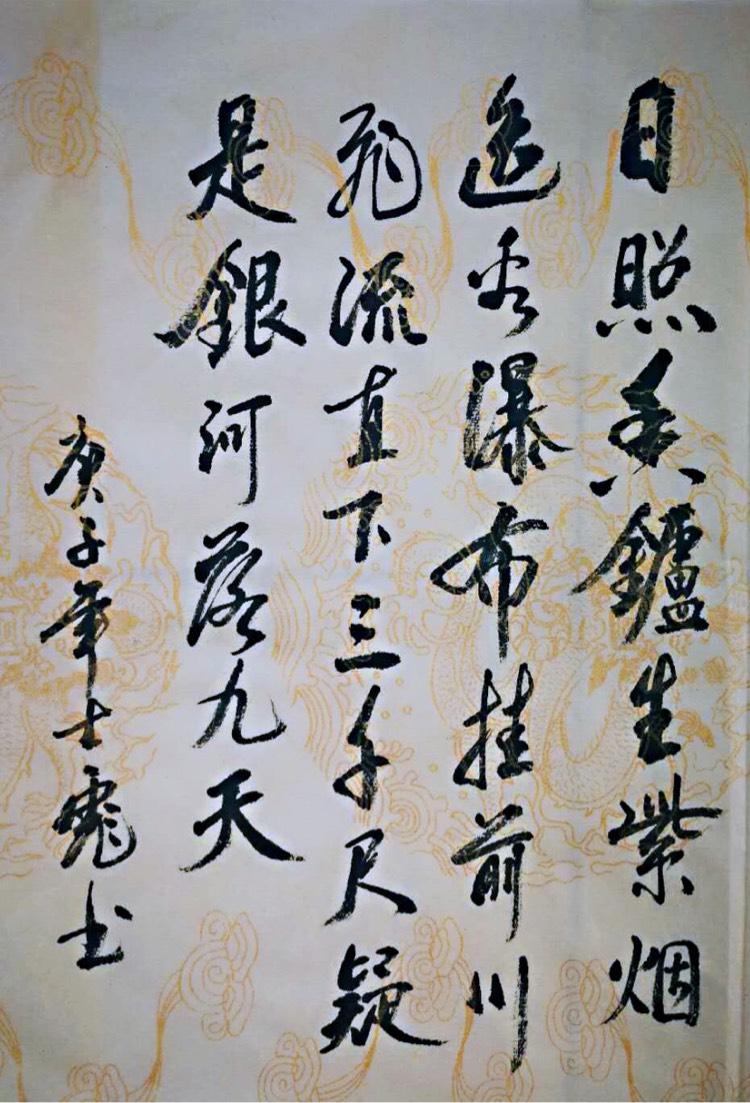 日照香鑪生紫烟
遥看瀑布挂前川
飛流直下三千尺疑
是銀河落九天
庚子年士龍书